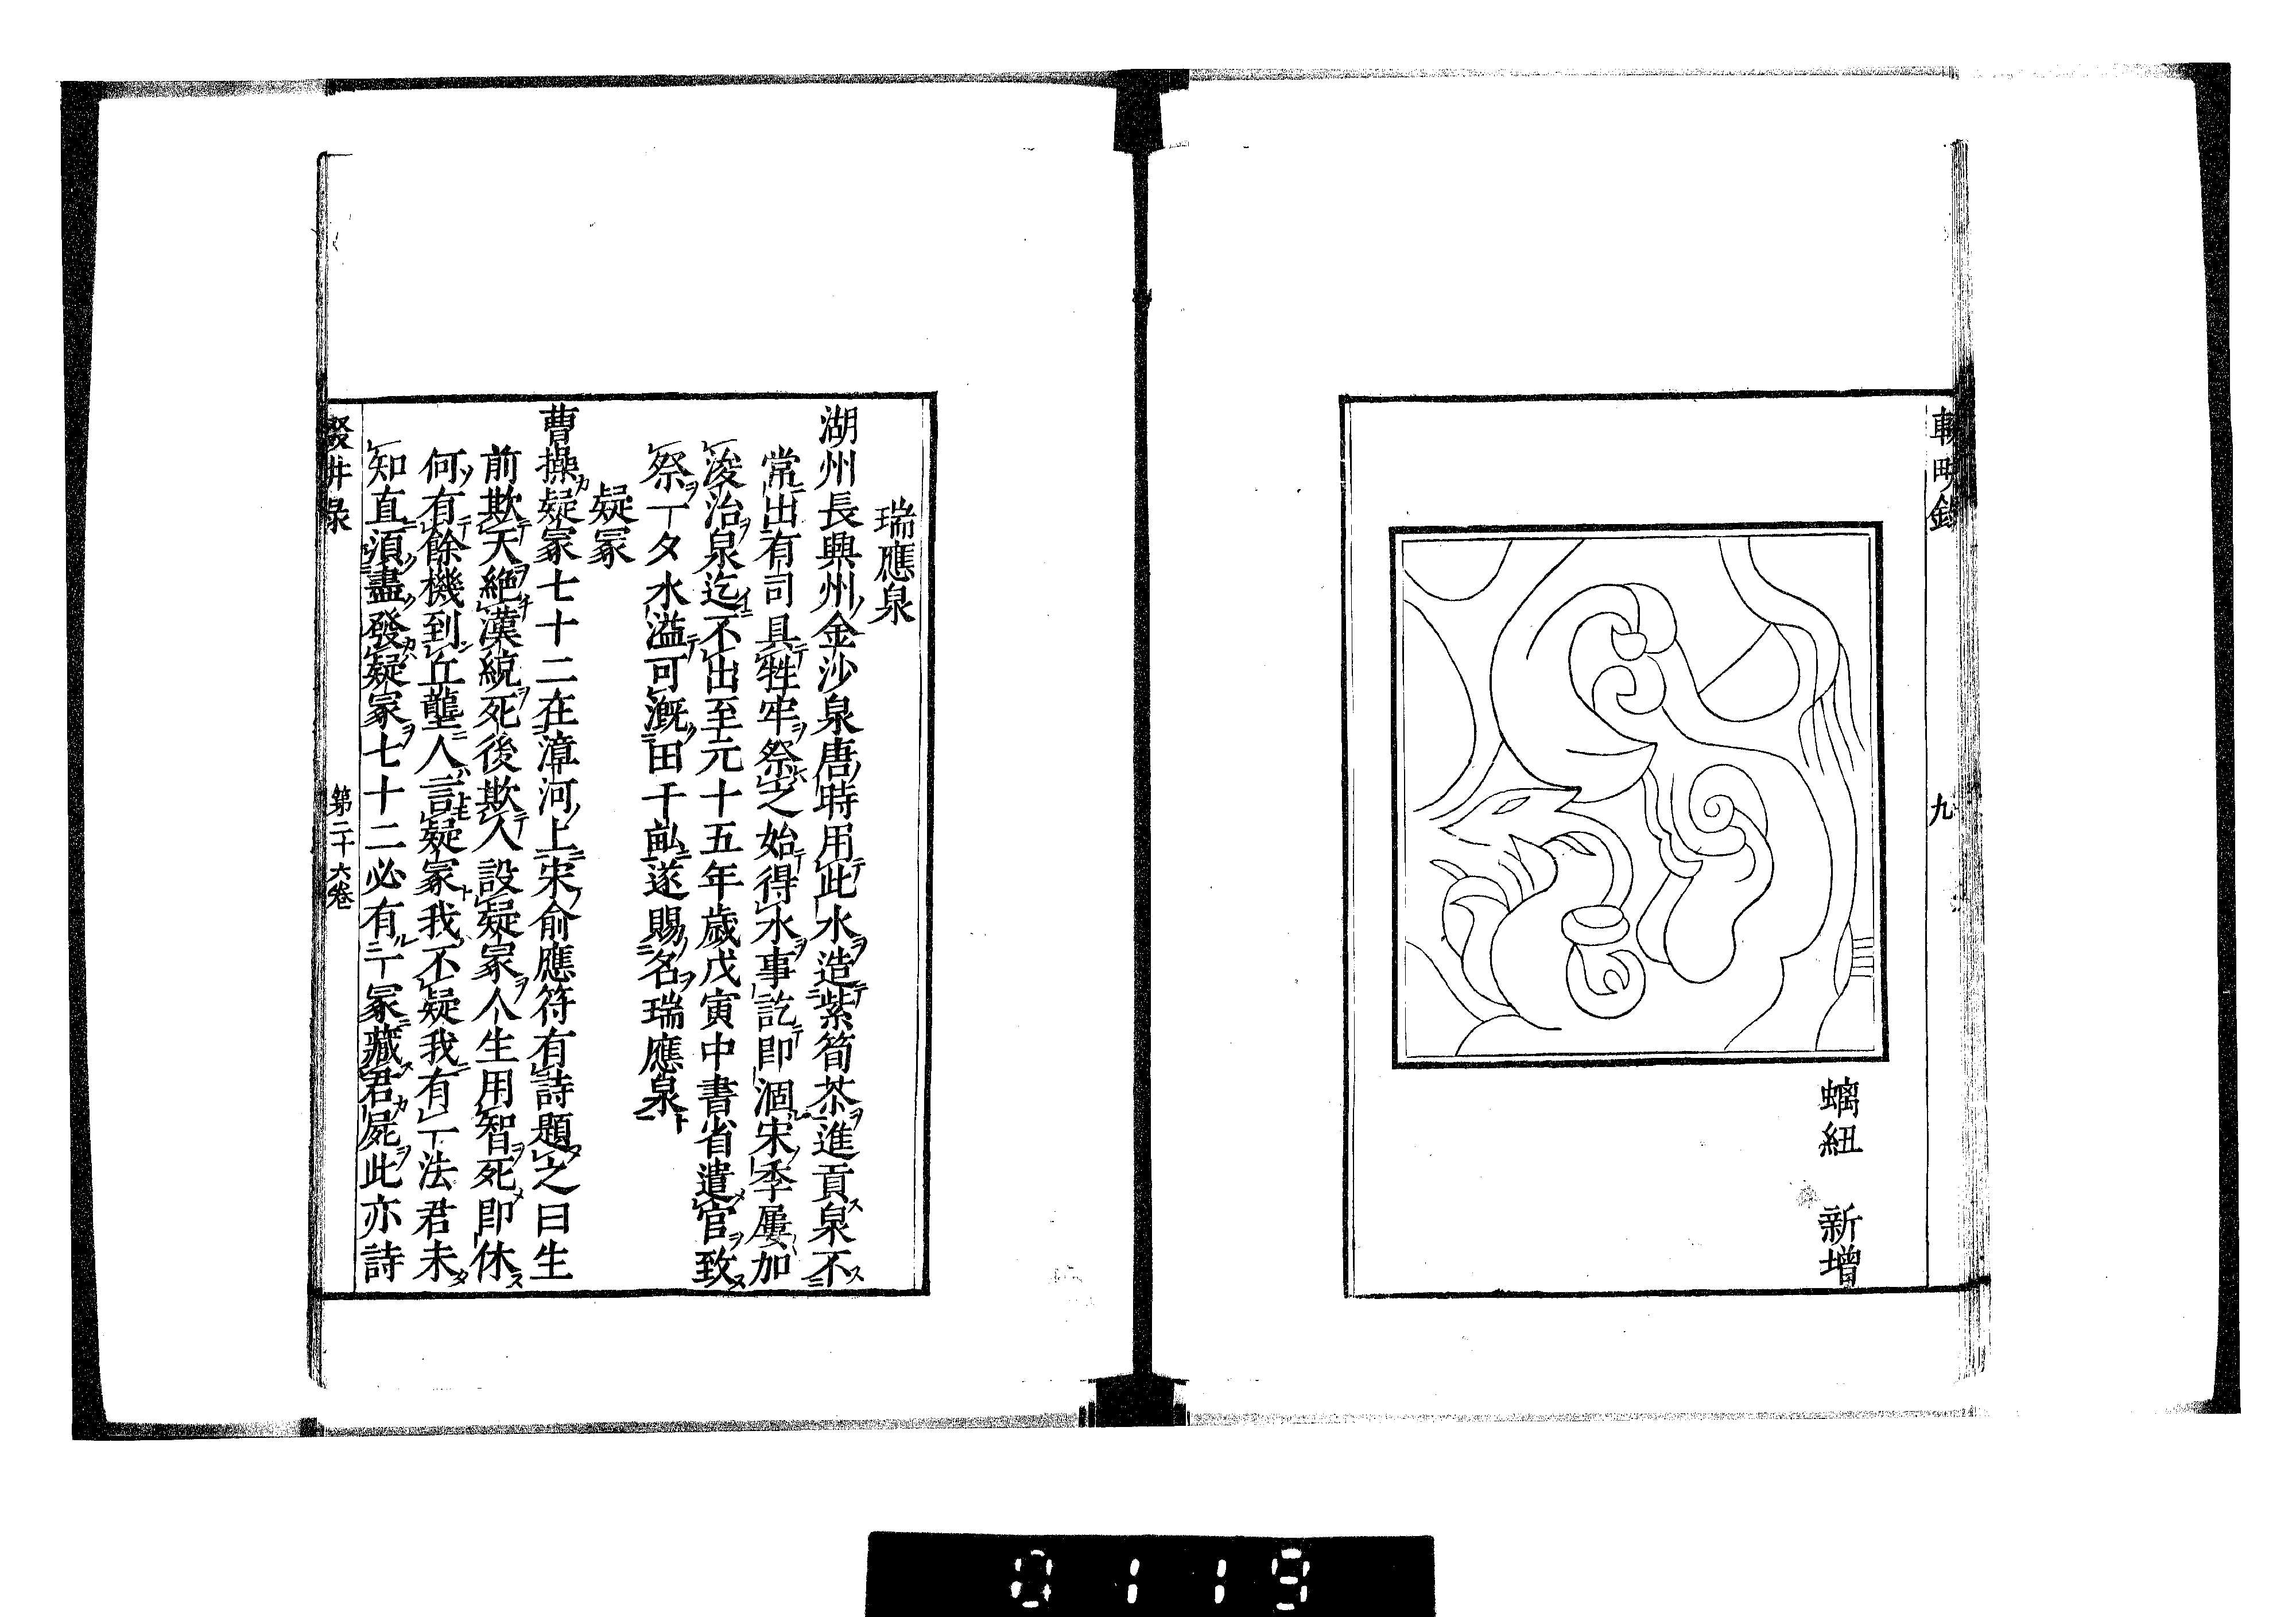 輟耕錄
九
螭紐　新增
瑞應泉
湖州長興州金沙泉唐時用此水造紫筍茶進貢泉不
常出有司具牲牢祭之始得水事訖即涸宋季屢加
浚治泉迄不出至元十五年歲戊寅中書省遣官致
祭一夕水溢可溉田千畝遂賜名瑞應泉
疑冢
曹操疑冢七十二在漳河上宋俞應符有詩題之曰生
前欺天絕漢統死後欺人設疑冢人生用智死即休
何有餘機到丘壟人言疑冢我不疑我有一法君未
知直須盡發疑冢七十二必有一冢藏君屍此亦詩
輟耕錄
第二十六卷
0119